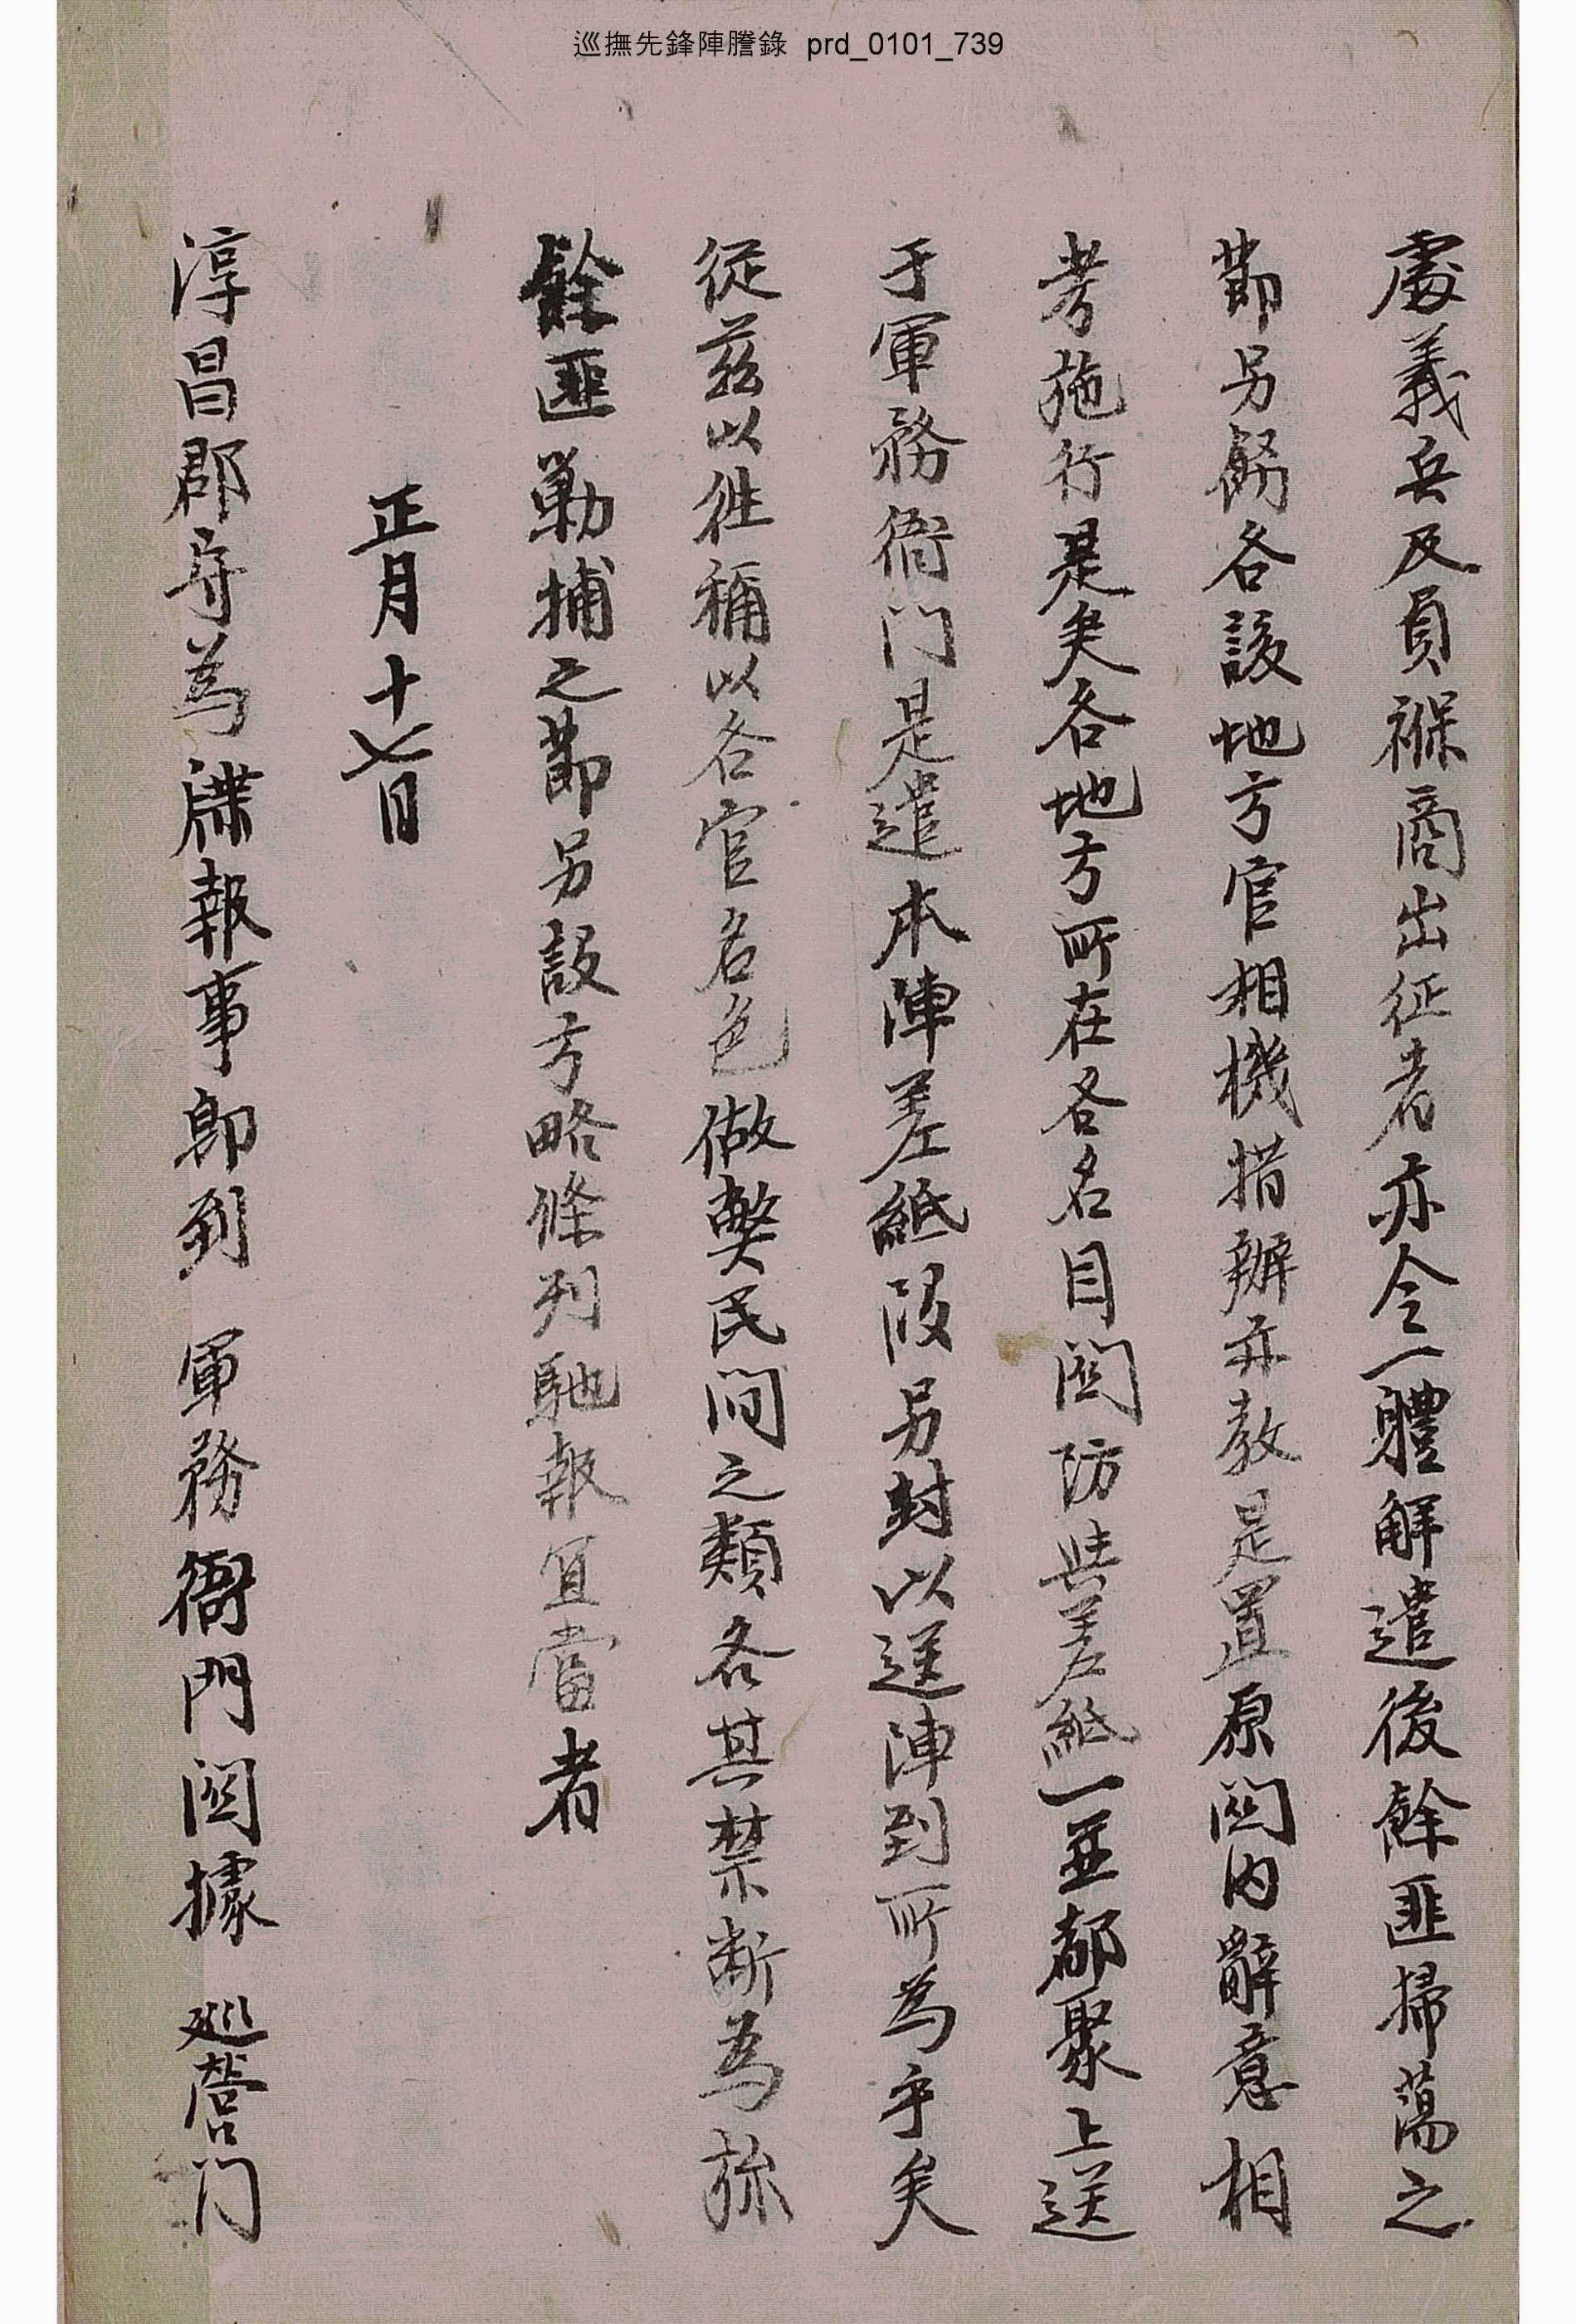 巡撫先鋒陣謄錄 prd_0101_739
處義兵及負褓商出征者亦令一體解遣後餘匪掃蕩之
節另飭各該地方官相機措辦亦敎是置原関內辭意相
考施行是矣各地方所在各名目関防與差紙一並都聚上送
于軍務衙门是遣本陣差紙段另封以送陣到所爲乎矣
從玆以徃稱以各官名色做弊民间之類各其禁断爲旀
餘匪勦捕之節另設方略條列馳報宜當者
正月十七日
淳昌郡守爲牒報事卽到 軍務衙門関據 巡營门